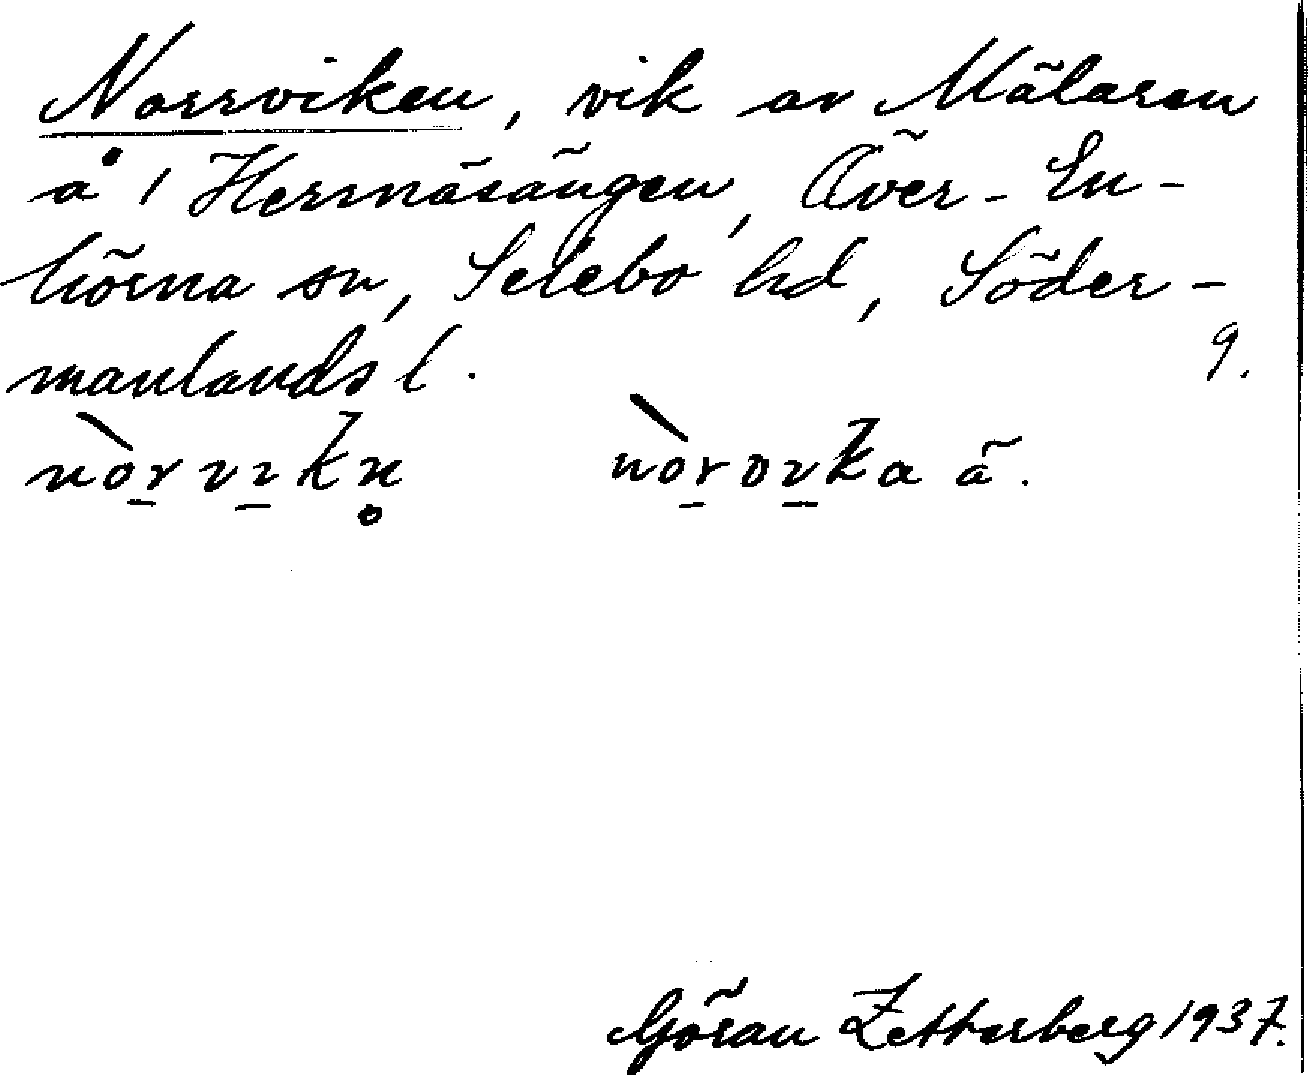 Norrviken, vik av Mälaren
å 1 Hernäsängen, Över-En-
hörna sn, Selebo hd, Söder-
manlands l. 9.
nòrvıkn nòrovıka ä.
Göran Zetterberg 1937.